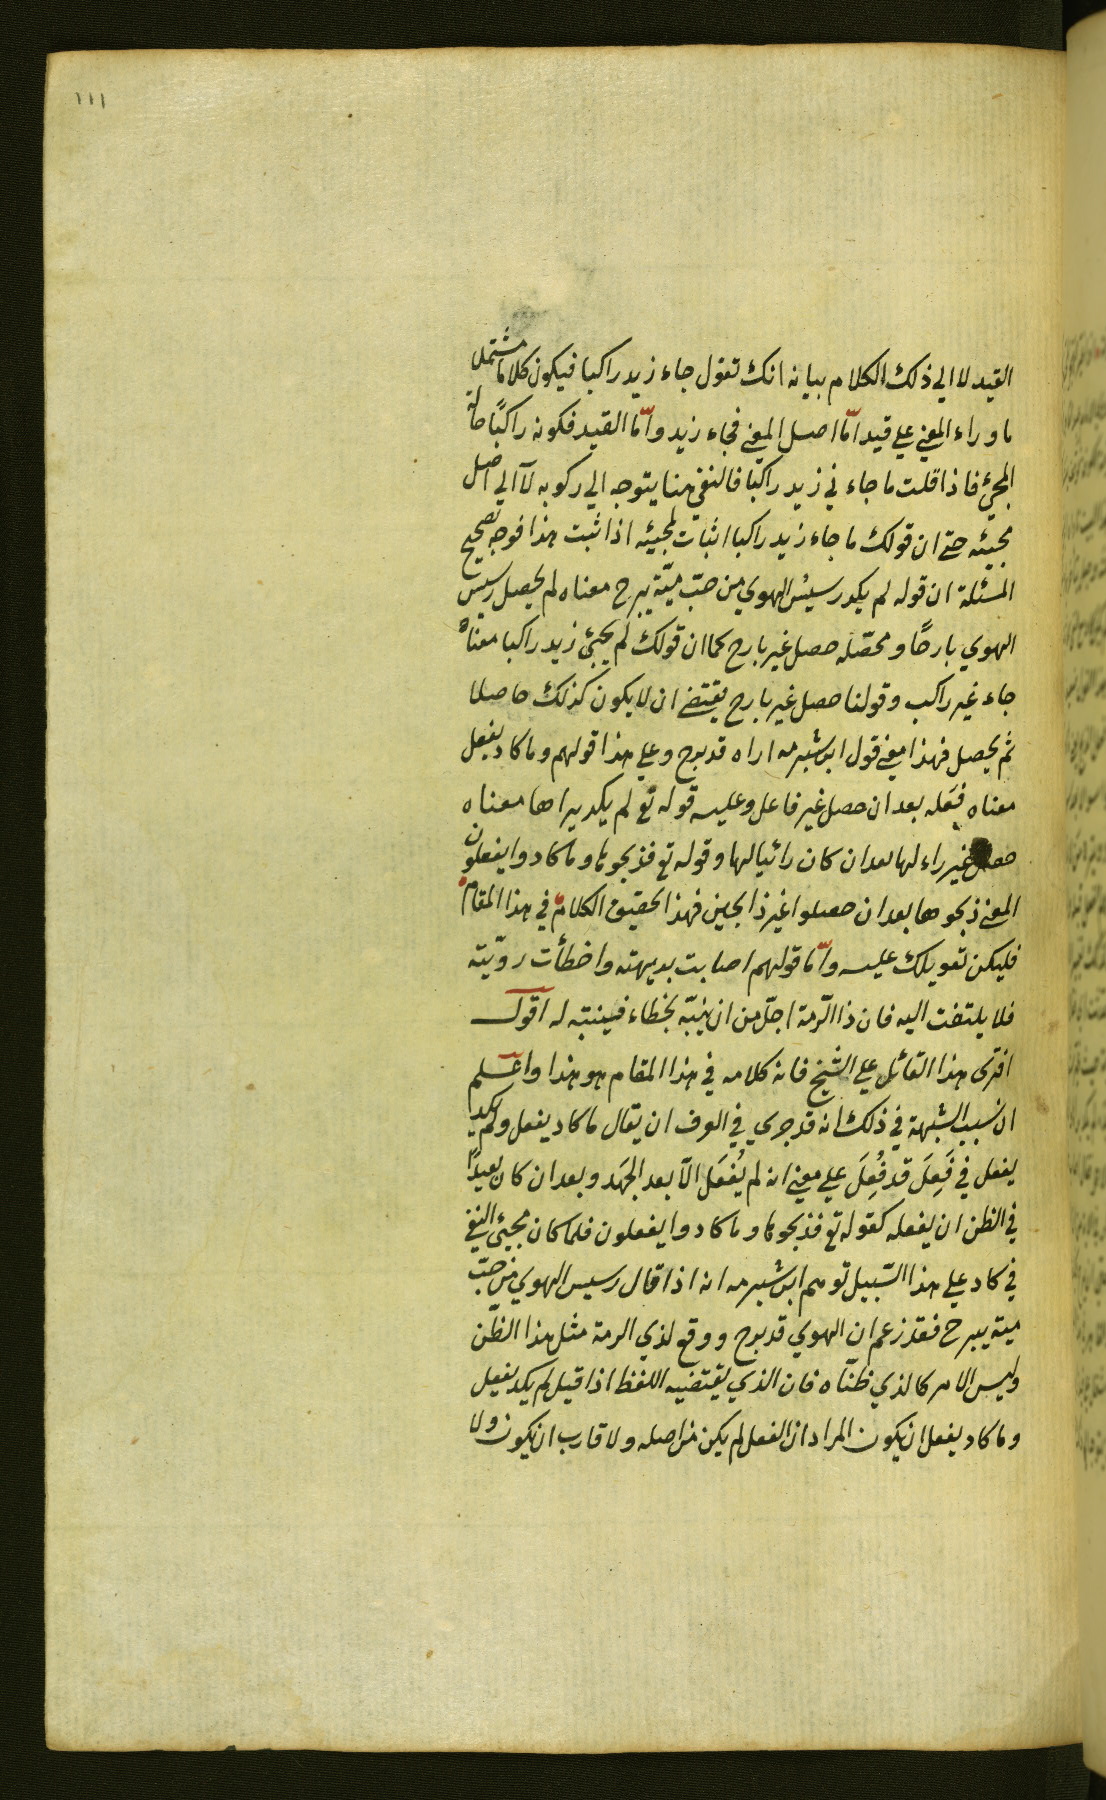 ١١١
القيد لا الي ذلك الكلام بيانه انك تقول جاء زيد راكبا فيكون كلاما مشتملا
ما وراء المعني علي قيد امّا اصل المعني فجاء زيد وامّا القيد فكونه راكبًا حالة
المجئ فاذا قلت ما جاء ني زيد راكبا فالنفي هنا يتوجه الي ركوبه لا الي اصل
مجيئه حتي ان قولك ما جاء زيد راكبا اثبات لمجيئه اذا ثبت هذا فوجه تصحيح
المسئلة ان قوله لم يكد رسيس الهوي من حبّ ميّة يبرح معناه لم يحصل رسيس
الهوي بارحًا ومحصّله حصل غير بارح كما ان قولك لم يجئ زيد راكبا معناه
جاء غير راكب وقولنا حصل غير بارح يقتضي ان لا يكون كذلك حاصلا
ثم يحصل فهذا معني قول ابن شبرمه اراه قد برح وعلي هذا قولهم وما كاد يفعل
معناه فعَله بعد ان حصل غير فاعل وعليه قوله تع لم يكد يراها معناه
حصل غير راء لها بعد ان كان رائيا لها وقوله تع فذبحوها وما كادوا يفعلون
المعني ذبحوها بعد ان حصلوا غير ذابحين فهذا تحقيق الكلام في هذا المقام
فليكن تعويلك عليه وامّا قولهم اصابت بديهته واخطأت رويّته
فلا يلتفت اليه فان ذا الرّمة اجلّ من ان ينبّه بخطاء فينتبه له اقول
افترى هذا القائل علي الشيخ فانه كلامه في هذا المقام هو هذا واعلم
ان سبب الشبهة في ذلك انه قد جري في العرف ان يقال ما كاد يفعل ولم يكد
يفعل في فَعِلَ قد فُعِلَ علي معني انه لم يُفعَل الّا بعد الجَهد وبعد ان كان بعيدًا
في الظن ان يفعله كقوله تع فذبحوها وما كادوا يفعلون فلما كان مجيئ النفي
في كاد علي هذا السّبيل توهم ابن شبرمه انه اذا قال رسيس الهوي من حبّ
مية يبرح فقد زعم ان الهوي قد برح ووقع لذي الرمة مثل هذا الظّن
وليس الامر كالذي ظنّاه فان الذي يقتضيه اللفظ اذا قيل لم يكد يفعل
وما كاد يفعل ان يكون المراد ان الفعل لم يكن من اصله ولا قارب ان يكون ولا